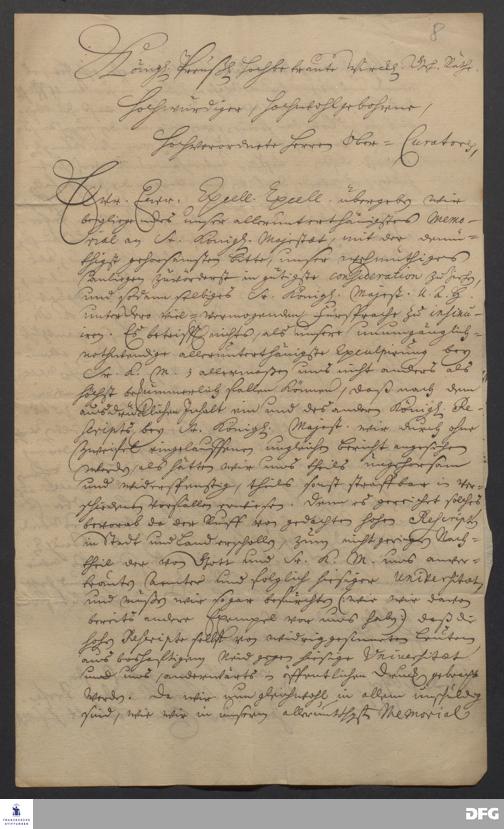 8
Königl. Preuß. Hochbetraute Würckl. Geh. Räthe.
Hochwürdiger, Hochwohlgebohrne,
Hochverordnete Herren Ober-Curatores,
Ewr. Excell. Excell. übergeben wir
beyliegendes unser allerunterthänigstes Memo-
rial an Sr. Königl. Majestät, mit der demü-
thigst gehorsamsten Bitte, unser
Anliegen zuvörderst in gütigste consideration zu ziehen,
und sodann selbiges Sr. Königl. Majest.
unter Dero viel-vermögenden Fürsprache zu insinui-
ren. Es betrifft nichts, als unsere unumgänglich-
nothwendige allerunterthänigste Exculpirung bey
Sr. K. M. allermassen uns nicht anders als
höchst bekümmerlich fallen können, daß nach dem
ausdrücklichen Inhalt ein und des andern Königl. Re-
scripts bey Sr. Königl. Majest. wir durch ohne
Zweifel eingelauffenen ungleichen Bericht angesehen
werden, als hätten wir uns theils ungehorsam
und widerspenstig, theils sonst straffbar in ver-
schiedenen Vorfällen erwiesen. Denn es gereichet solches
bevorab da der Ruff von gedachten hohen Rescripten
in Stadt und Land erschollen, zum nicht geringen Nach-
theil der von Gott und Sr. K. M. uns anver-
trauten Aemter und folglich hiesiger Universität,
und müssen wir sogar befürchten (wie wir davon
bereits andere Exempel vor uns haben) daß die
hohen Rescripte selbst von widriggesinneten Leuten,
aus boshafftigem Neid gegen hiesige Universität
und uns, anderwärts in öffentlichen Druck gebracht
werden. Da wir nun gleichwohl in allem unschuldig
sind, wie wir in unserm allerunthgst. Memorial
FRANCKESCHE
STIFTUNGEN
DFG